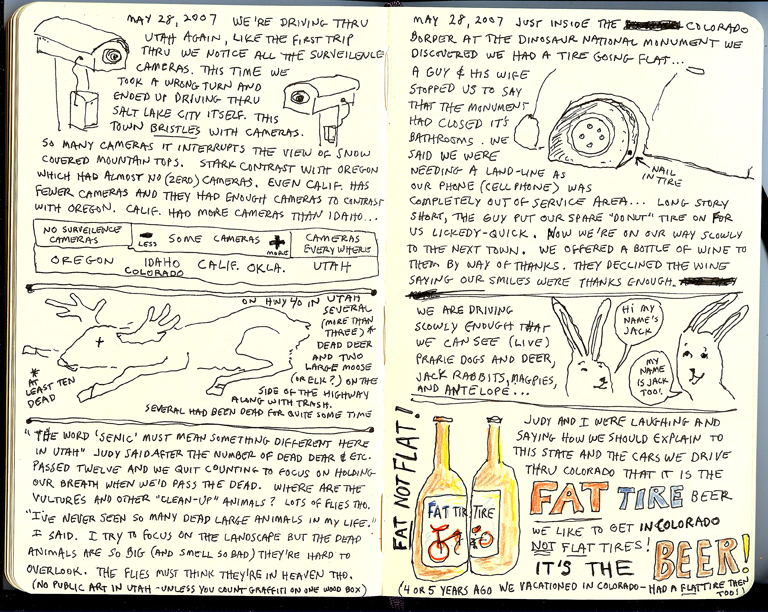 MAY 28, 2007 WE'RE DRIVING THRU
UTAH AGAIN, LIKE THE FIRST TRIP
THRU WE NOTICE ALL THE SURVEILENCE
CAMERAS. THIS TIME WE
TOOK A WRONG TURN AND
ENDED UP DRIVING THRU
SALT LAKE CITY ITSELF. THIS
TOWN BRISTLES WITH CAMERAS.
SO MANY CAMERAS IT INTERRUPTS THE VIEW OF SNOW
COVERED MOUNTAIN TOPS. STARK CONTRAST WITH OREGON
WHICH HAD ALMOST NO (ZERO) CAMERAS. EVEN CALIF. HAS
FEWER CAMERAS AND THEY HAD ENOUGH CAMERAS TO CONTRAST
WITH OREGON. CALIF. HAD MORE CAMERAS THAN IDAHO...
NO SURVEILENCE
CAMERAS
- LESS SOME CAMERAS + MORE
CAMERAS
EVERYWHERE
OREGON IDAHO CALIF. OKLA. UTAH
COLORADO
ON HWY 40 IN UTAH
SEVERAL
(MORE THAN
THREE) *
DEAD DEER
AND TWO
LARGE MOOSE
(OR ELK?) ON THE
SIDE OF THE HIGHWAY
ALONG WITH TRASH.
SEVERAL HAD BEEN DEAD FOR QUITE SOME TIME
* AT
LEAST TEN
DEAD
"THE WORD 'SENIC' MUST MEAN SOMETHING DIFFERENT HERE
IN UTAH" JUDY SAID AFTER THE NUMBER OF DEAD DEAR & ETC.
PASSED TWELVE AND WE QUIT COUNTING TO FOCUS ON HOLDING
OUR BREATH WHEN WE'D PASS THE DEAD. WHERE ARE THE
VULTURES AND OTHER "CLEAN-UP" ANIMALS? LOTS OF FLIES THO.
"I'VE NEVER SEEN SO MANY DEAD LARGE ANIMALS IN MY LIFE."
I SAID. I TRY TO FOCUS ON THE LANDSCAPE BUT THE DEAD
ANIMALS ARE SO BIG (AND SMELL SO BAD) THEY'RE HARD TO
OVERLOOK. THE FLIES MUST THINK THEY'RE IN HEAVEN THO.
(NO PUBLIC ART IN UTAH - UNLESS YOU COUNT GRAFFITI ON ONE WOOD BOX)
MAY 28, 2007 JUST INSIDE THE COLORADO
BORDER AT THE DINOSAUR NATIONAL MONUMENT WE
DISCOVERED WE HAD A TIRE GOING FLAT...
A GUY & HIS WIFE
STOPPED US TO SAY
THAT THE MONUMENT
HAD CLOSED IT'S
BATHROOMS. WE
SAID WE WERE
NEEDING A LAND-LINE AS
OUR PHONE (CELLPHONE) WAS
COMPLETELY OUT OF SERVICE AREA... LONG STORY
SHORT, THE GUY PUT OUR SPARE "DONUT" TIRE ON FOR
US LICKEDY-QUICK. NOW WE'RE ON OUR WAY SLOWLY
TO THE NEXT TOWN. WE OFFERED A BOTTLE OF WINE TO
THEM BY WAY OF THANKS. THEY DECLINED THE WINE
SAYING OUR SMILES WERE THANKS ENOUGH.
NAIL
IN TIRE
WE ARE DRIVING
SLOWLY ENOUGH THAT
WE CAN SEE (LIVE)
PRARIE DOGS AND DEER,
JACK RABBITS, MAGPIES,
AND ANTELOPE...
HI MY
NAME'S
JACK
MY
NAME IS JACK
TOO!
FAT NOT FLAT!
FAT TIR
TIRE
JUDY AND I WERE LAUGHING AND
SAYING HOW WE SHOULD EXPLAIN TO
THIS STATE AND THE CARS WE DRIVE
THRU COLORADO THAT IT IS THE
FAT TIRE BEER
WE LIKE TO GET IN COLORADO
NOT FLAT TIRES!
IT'S THE BEER!
(4 OR 5 YEARS AGO WE VACATIONED IN COLORADO - HAD A FLAT TIRE THEN
TOO!)